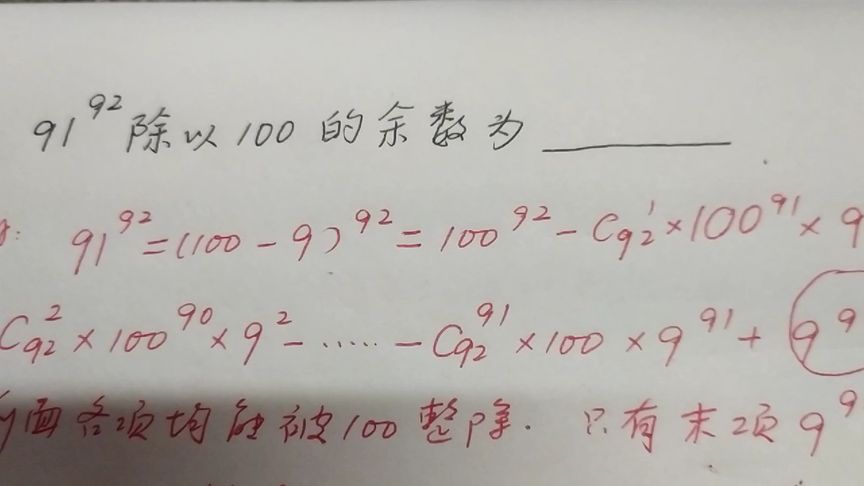 91^92除以100的余数为______
: 91^92=(100-9)^92=100^92-C₉₂^1×100^91×9
C₉₂^2×100^90×9^2-……-C₉₂^91×100×9^91+9^9
面各项均能被100整除. 只有末项9^9